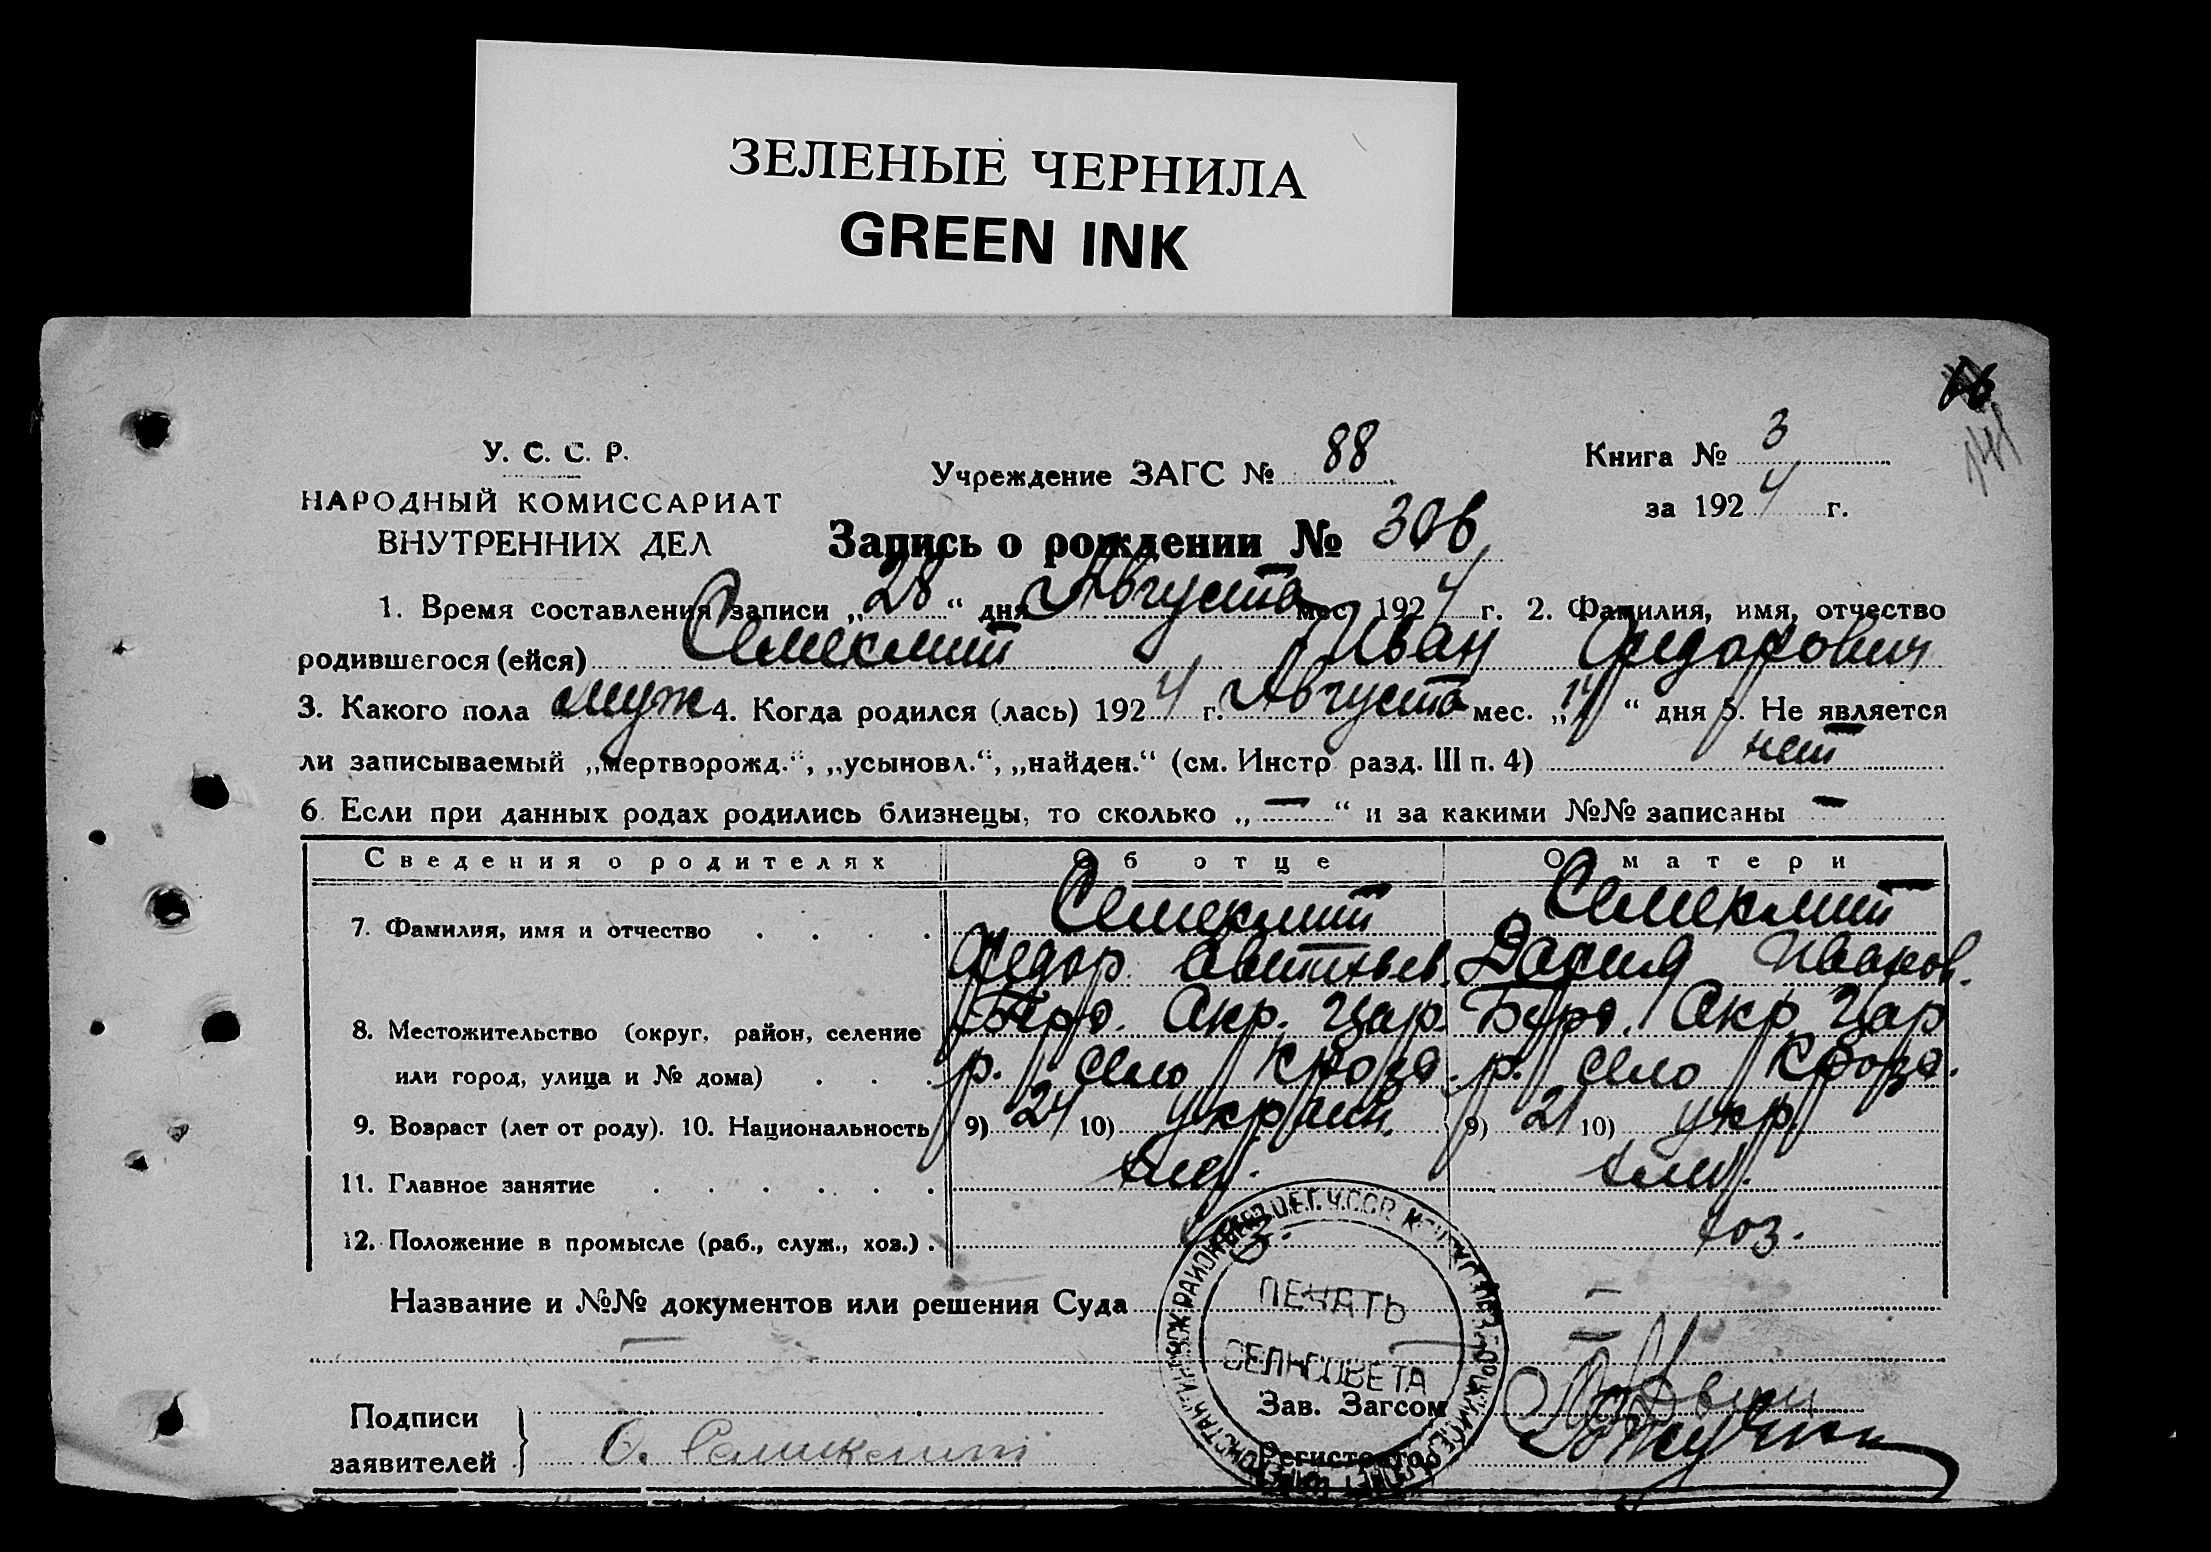 ЗЕЛЕНЫЕ ЧЕРНИЛА
GREEN INK
16
141
У. С. С. Р.
НАРОДНЫЙ КОМИССАРИАТ
ВНУТРЕННИХ ДЕЛ
Учреждение ЗАГС № 88
Книга № 3
за 1924 г.
Запись о рождении № 306
1. Время составления записи „28“ дня Августа мес. 1924 г. 2. Фамилия, имя, отчество
родившегося (ейся) Семеклит Иван Федорович
3. Какого пола муж 4. Когда родился (лась) 1924 г. Августа мес. „14“ дня 5. Не является
ли записываемый „мертворожд.“, „усыновл.“, „найден.“ (см. Инстр. разд. III п. 4) нет
6. Если при данных родах родились близнецы, то сколько „—“ и за какими №№ записаны —
Сведения о родителях Об отце О матери
7. Фамилия, имя и отчество Семеклит Семеклит
Федор Дария Иванов.
8. Местожительство (округ, район, селение Окр. Цар. Окр. Цар
или город, улица и № дома) р. село р. село
9. Возраст (лет от роду). 10. Национальность 9) 24 10) украин. 9) 21 10) укр.
11. Главное занятие хлеб. хлеб.
12. Положение в промысле (раб., служ., хоз.) хоз.
Название и №№ документов или решения Суда —
ПЕЧАТЬ
СЕЛЬСОВЕТА
Зав. Загсом
Подписи
заявителей
Регистратор